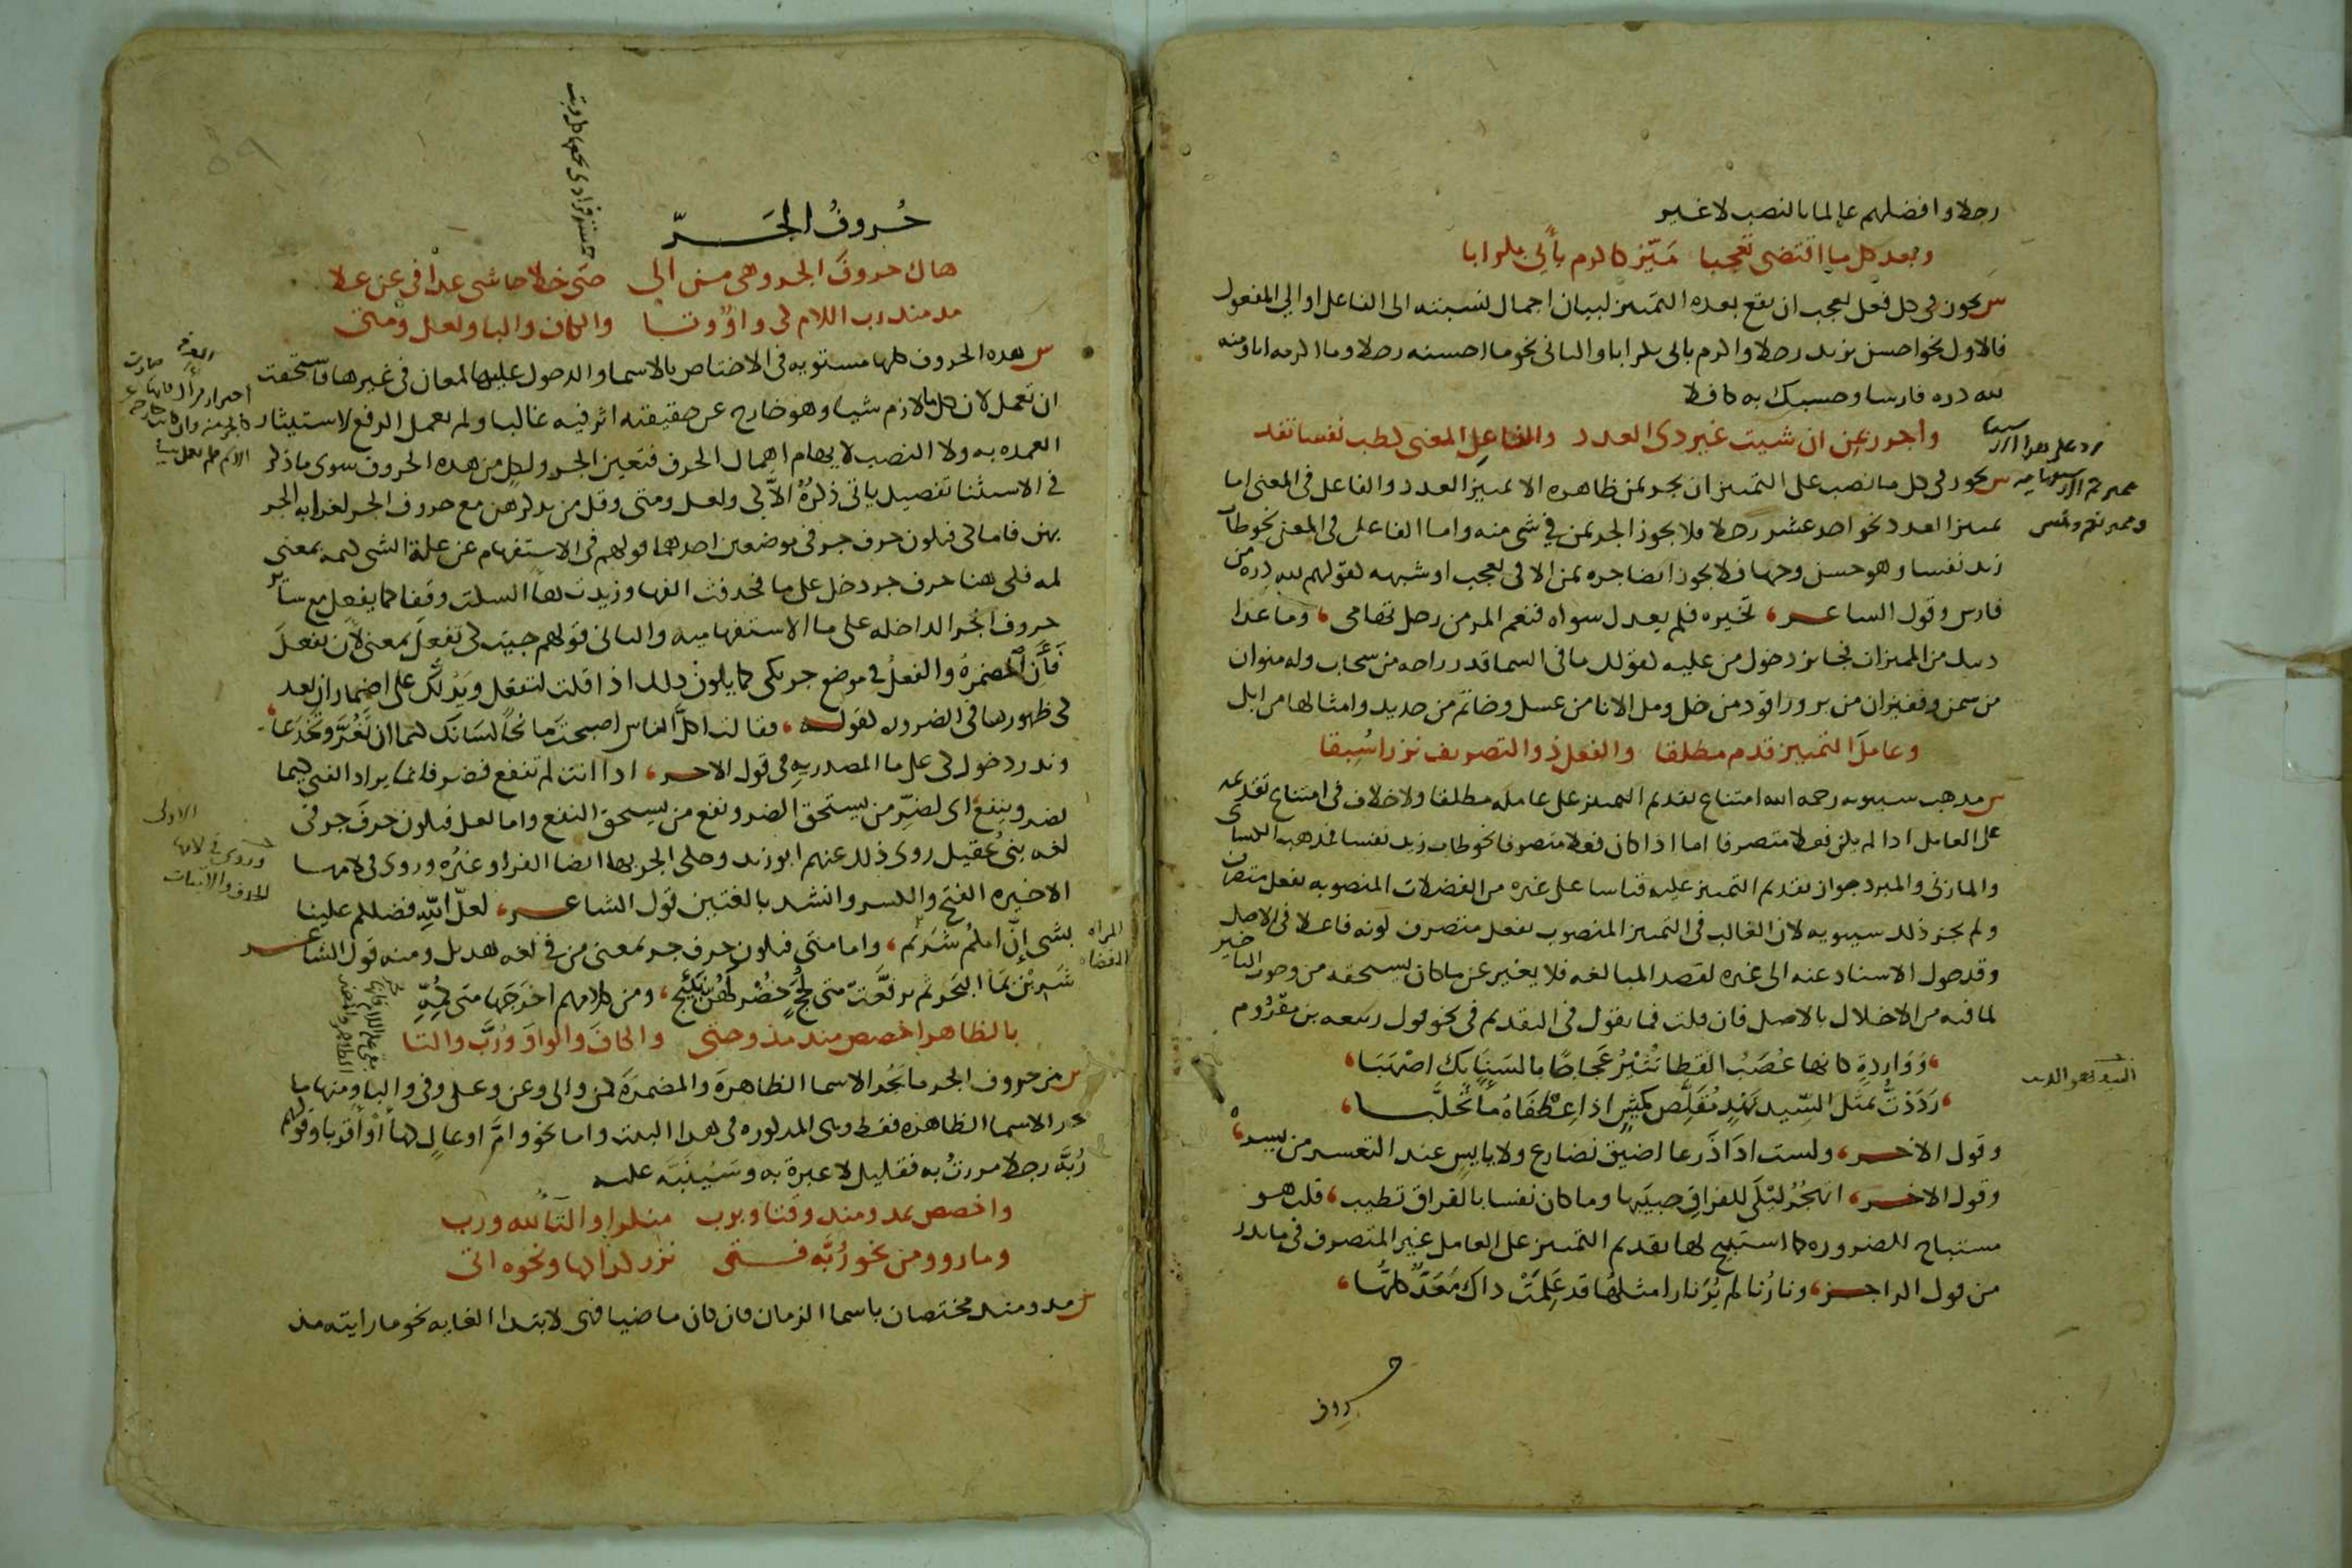 رجلا وافضلهم عالما بالنصب لا غير
وبعد كل ما اقتضى تعجبا ميّز كاكرم بأبي بكر ابا
س يجوز في كل فعل تعجب ان يقع بعده التمييز لبيان اجمال نسبته الى الفاعل او الي المفعول
فالاول نحو احسن بزيد رجلا واكرم بابي بكر ابا والثاني نحو ما احسنه رجلا وما اكرمه ابا ومنه
لله دره فارسا وحسبك به كافلا
واجرر بمن ان شيت غير ذى العدد والفاعل المعنى كطب نفسا تفد
س يجوز في كل ما نصب على التمييز ان يجر بمن ظاهره الا تمييز العدد والفاعل في المعنى اما
تمييز العدد نحو احد عشر رجلا فلا يجوز الجر بمن في شي منه واما الفاعل في المعنى نحو طاب
زيد نفسا وهو حسن وجها فلا يجوز ايضا جره بمن الا في تعجب او شبهه كقولهم لله دره من
فارس وقول الشاعر، تخيره فلم يعدل سواه فنعم المر من رجل تهامى، وما عدا
ذلك من المميزات فجايز دخول من عليه كقولك ما في السما قدر راحه من سحاب وله منوان
من سمن وقفيزان من بر وراقود من خل ومل الانا من عسل وخاتم من حديد وامثالها من ابل
وعامل التمييز قدم مطلقا والفعل ذو التصريف نزرا سُبقا
س مذهب سيبويه رحمه الله امتناع تقديم التمييز على عامله مطلقا ولا خلاف في امتناع تقديمه
على العامل اذا لم يكن فعلا متصرفا اما اذا كان فعلا متصرفا نحو طاب زيد نفسا فذهب الكساى
والمازنى والمبرد جواز تقديم التمييز عليه قياسا على غيره من الفضلات المنصوبه بفعل متصرف
ولم يجز ذلك سيبويه لان الغالب في التمييز المنصوب بفعل متصرف كونه فاعلا في الاصل
وقد حول الاسناد عنه الى غيره لقصد المبالغه فلا يغير عن ما كان يستحقه من وجوب التاخير
لما فيه من الاخلال بالاصل فان قلت فما تقول في التقديم في نحو قول ربيعه بن مقروم
، وَوَارِدةٍ كانها عُصَبُ القطا تُثيْرُ عَجاجًا بالسَنابِك اصْهَبَا،
، رَدَدْتُ بمثل السِّيد نَهْدٍ مُقَلّصٍ كميش اذا عِطفَاهُ ماءً تحلَّبا،
وقول الاخر، ولست اذا ذرعا اضيق بضارع ولا يايس عند التعسر من يسر،
وقول الاخر، اتهجُرُ ليْلَى للفراق حبيبَها وما كان نفسا بالفراق تطيب، قلت هو
مستباح للضروره كما استبيح لها تقديم التمييز على العامل غير المتصرف في ما ندر
من قول الراجز، ونارُنا لم يُرَ نارا مثلها قد عَلمَتْ ذاك مَعَدٌّ كلّها،
حروف
حُروفُ الجَرّ
هاك حروفَ الجر وهى من الى حتى خلا حاشى عدا في عن على
مذ منذ رب اللام كى واوٌ وتا والكاف والبا ولعل ومتى
س هذه الحروف كلها مستويه في الاختصاص بالاسما والدخول عليها لمعان في غيرها فاستحقت
ان تعمل لان كل ما لازم شيا وهو خارج عن حقيقته اثر فيه غالبا ولم تعمل الرفع لاستيثار
العمده به ولا النصب لايهام اهمال الحرف فتعين الجر ولكل من هذه الحروف سوى ما ذكر
في الاستثنا تفصيل ياتى ذكرُهُ الاّ كى ولعل ومتى وقل من يذكرهن مع حروف الجر لغرابه الجر
بهن فاما كى فتكون حرف جر في موضعين احدهما قولهم في الاستفهام عن علة الشى كيمه بمعنى
لمه فكى هنا حرف جر دخل على ما فحذفت الفها وزيدت هآ السكت وقفا كما يفعل مع ساير
حروف الجر الداخله على ما الاستفهاميه والثانى قولهم جيت كى تفعلَ بمعنى لان تفعلَ
فأن المضمرهُ والفعلُ في موضع جر بكى كما يكون ذلك اذا قلت لتفعل ويَدُلُّك على اضمار ان بعد
كى ظهورها في الضروره كقوله، فقالت اكلَّ الناس اصبحتَ مانحًا لسَانَك كيما ان تَغُرَّ وتَخْدَعا،
وندر دخول كى على ما المصدريه في قول الاخر، اذا انت لم تنفع فضر فانما يراد الفتى كيما
يضر وينفع، اى لضرِّ من يستحق الضر ونفع من يستحق النفع واما لعل فتكون حرفَ جر في
لغه بنى عُقيل روى ذلك عنهم ابو زيد وحكى الجر بها ايضا الفرا وغيُره وروى في لامها
الاخيره الفتح والكسر وانشد بالغتين قول الشاعر، لعلّ اللهِ فضلكم علينا
بشى إنّ امكمُ شَرِيْم، واما متى فتكون حرف جر بمعنى من في لغه هذيل ومنه قول الشاعر
شَرِبْن بمَا البَحر ثم ترفَّعتْ متى لجُجٍ خُضْرٍ لهُن نئيج، ومن كلامهم اخرَجَها متى كُمِّهِ
بالظاهر اخصص منذ مذ وحتى والكافَ والواوَ ورُبَّ والتا
س من حروف الجر ما يجُر الاسما الظاهرةَ والمضمرَةَ كمن والى وعن وعلى وفي والبا ومنها ما
يجر الاسما الظاهره فقط وهى المذكوره في هذا البيت واما نحو وامَّ اوعالٍ كهَا أوْ أقربا وقولهم
رُبَّه رجلا مررتُ به فقليل لا عبرة به وسَيُنبّه عليه
واخصص بمذ ومنذ وقتا وبرب منكرا والتآ لله ورب
وما رووا من نحو رُبَّه فتى نزر كذا كها ونحوه اتى
س مذ ومنذ مختصان باسما الزمان فان كان ماضيا فهى لابتدا الغايه نحو ما رايته مذ